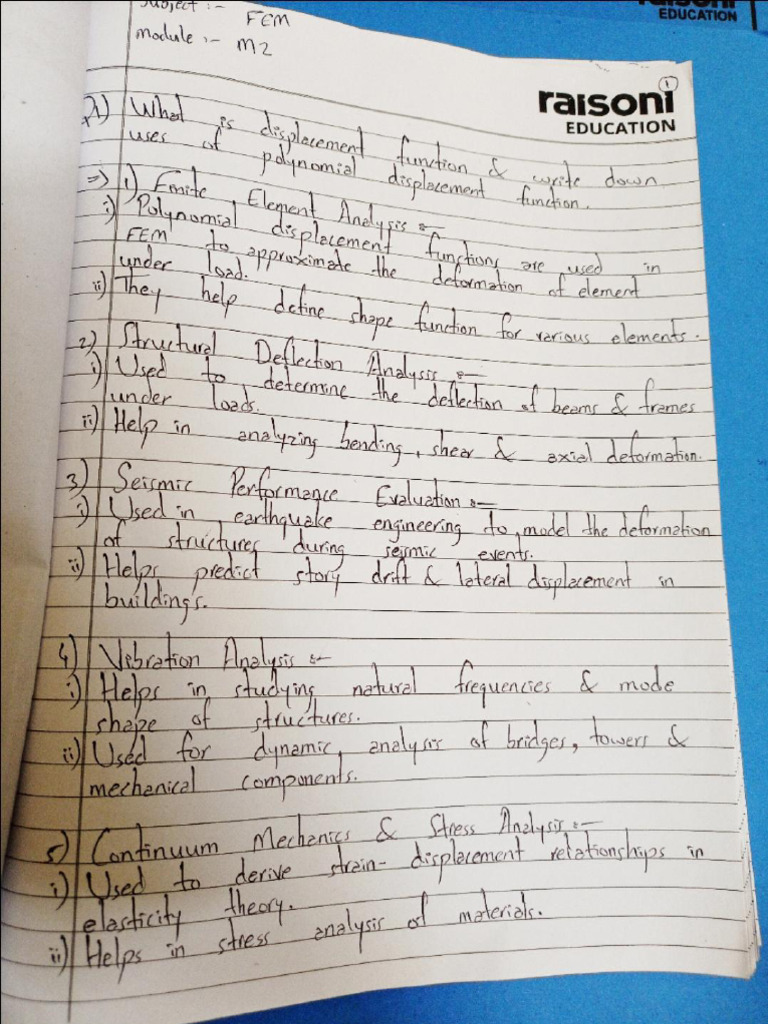 raisoni
EDUCATION
Subject :- FEM
module :- M2
1
raisoni
EDUCATION
λ) What is displacement function & write down
uses of polynomial displacement function.
⇒ 1) Finite Element Analysis :-
i) Polynomial displacement functions are used in
FEM to approximate the deformation of element
under load.
ii) They help define shape function for various elements.
2) Structural Deflection Analysis :-
i) Used to determine the deflection of beams & frames
under loads.
ii) Help in analyzing bending, shear & axial deformation.
3) Seismic Performance Evaluation :-
i) Used in earthquake engineering to, model the deformation
of structures during seismic events.
ii) Helps predict story drift & lateral displacement in
buildings.
4) Vibration Analysis :-
i) Helps in studying natural frequencies & mode
shape of structures.
ii) Used for dynamic, analysis of bridges, towers &
mechanical components.
5) Continuum Mechanics & Stress Analysis :-
i) Used to derive strain-displacement relationships in
elasticity theory.
ii) Helps in stress analysis of materials.